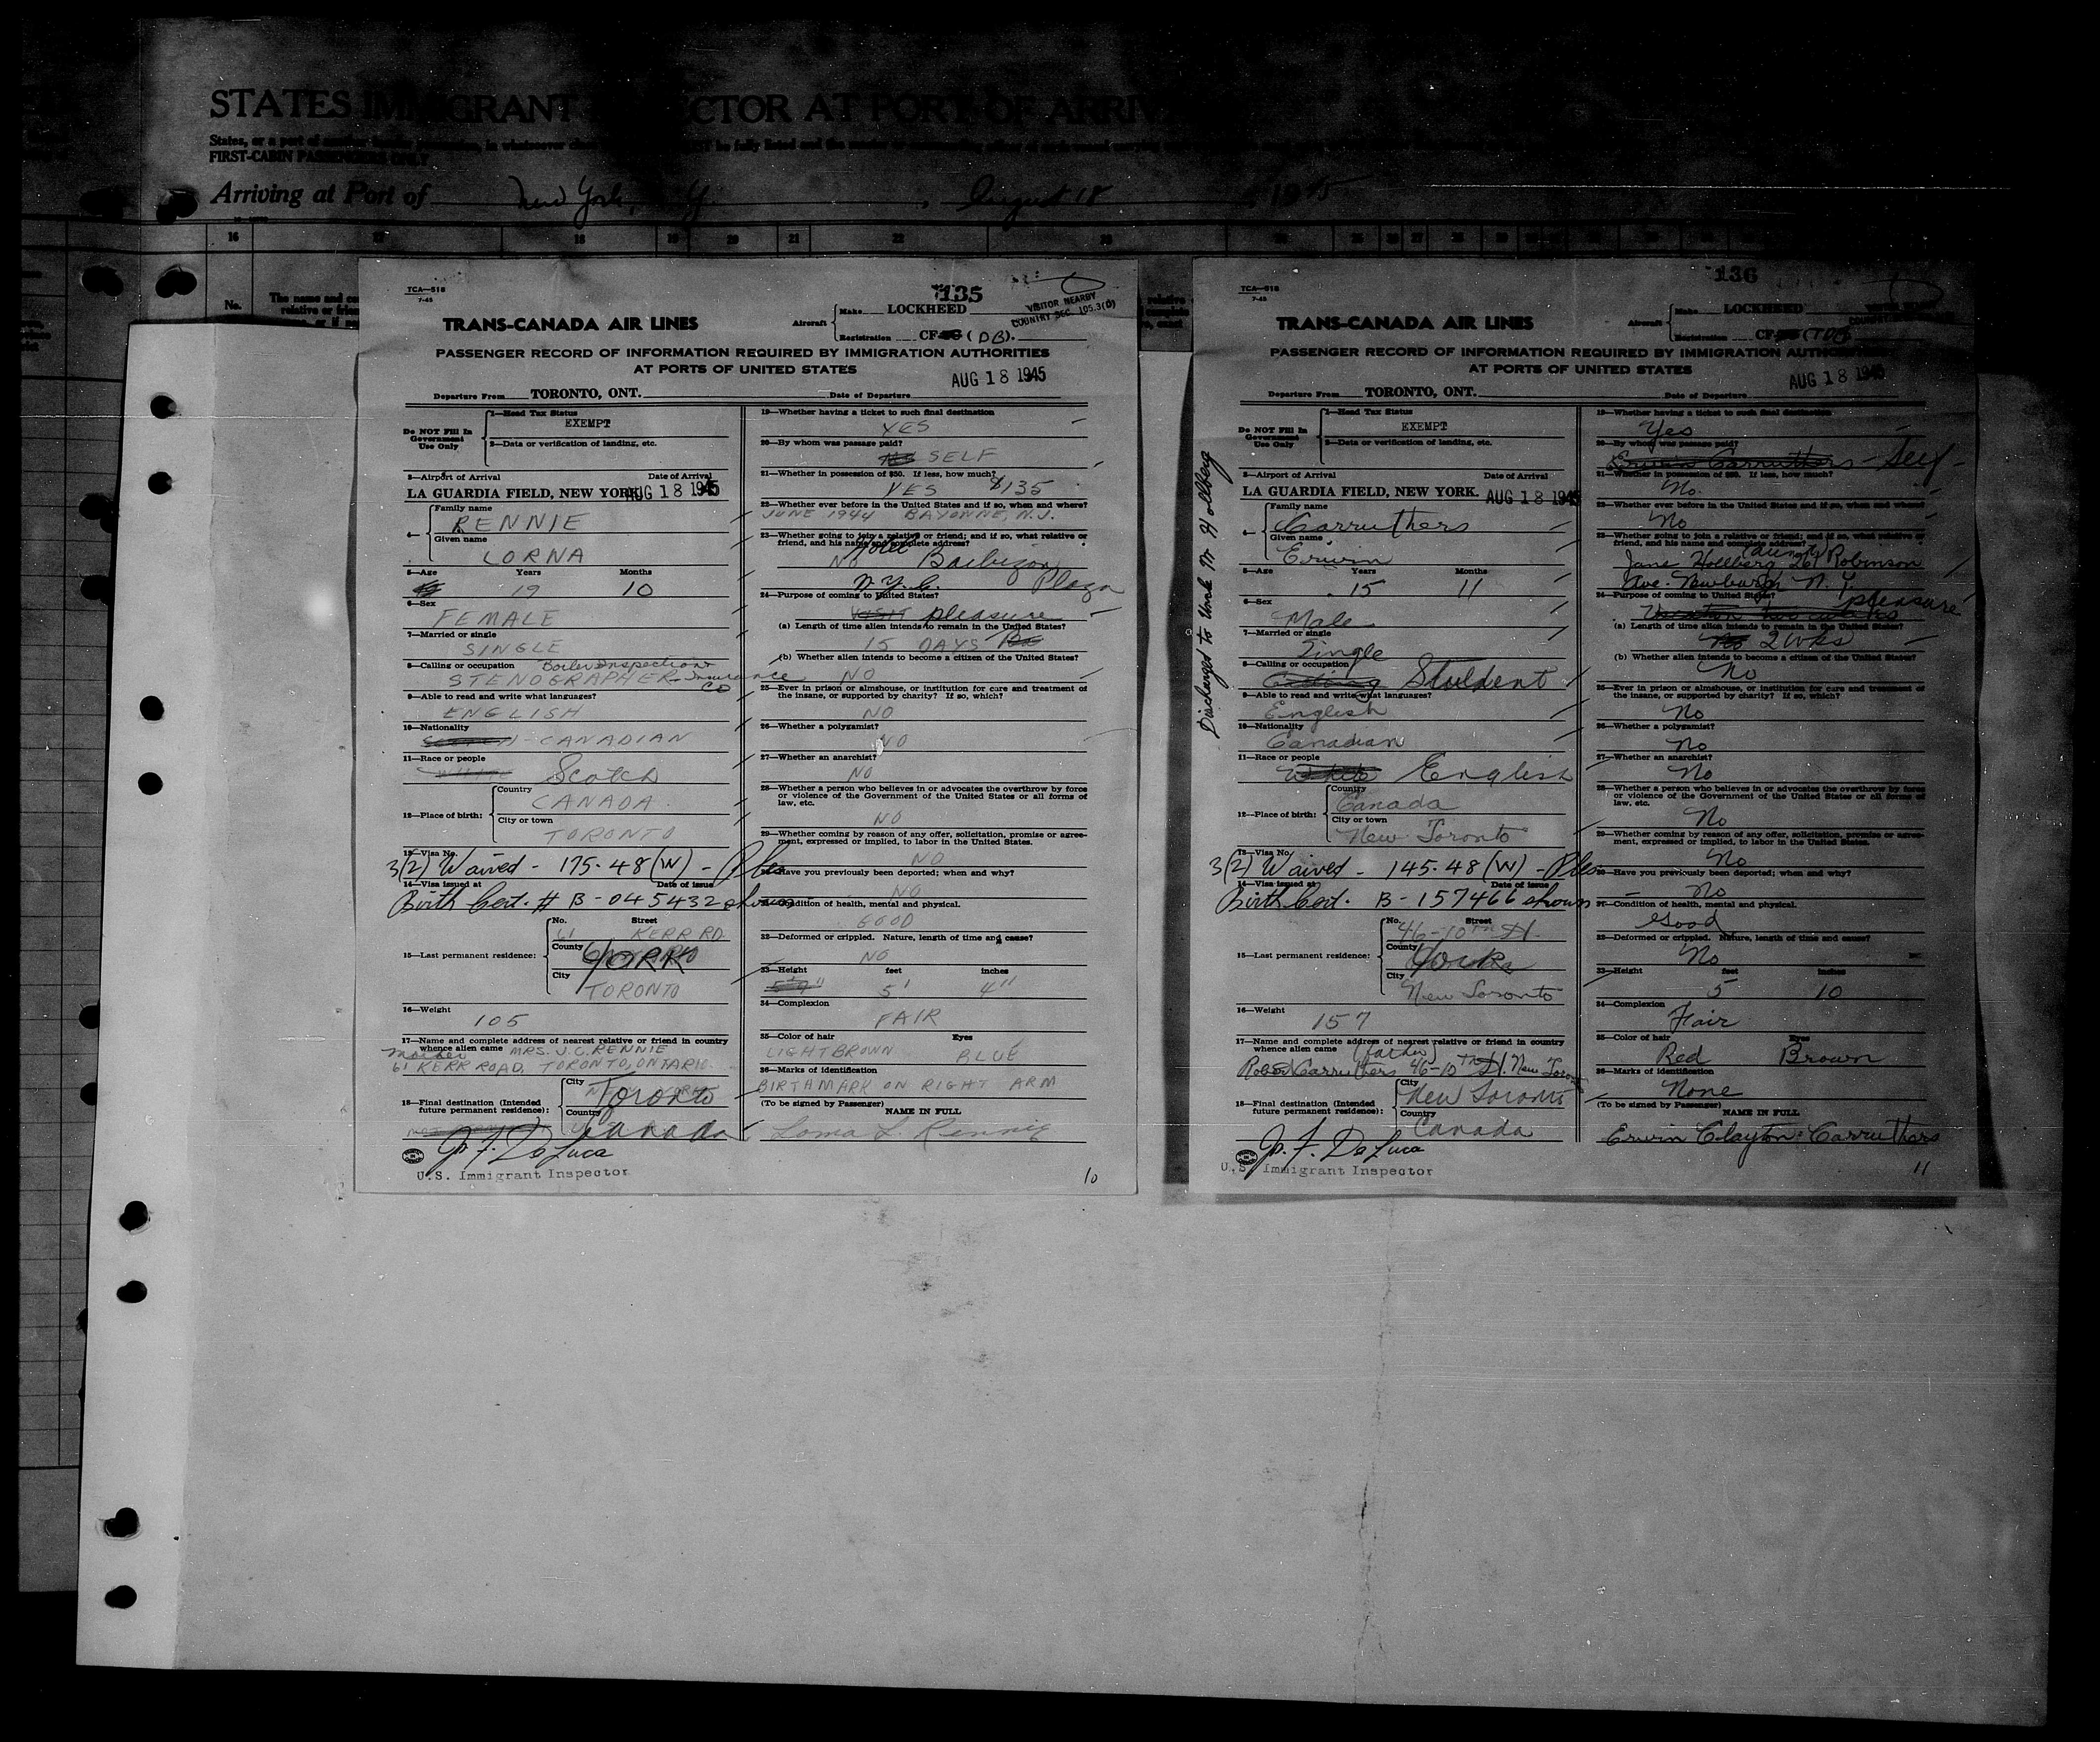 STATES IMMIGRANT INSPECTOR AT PORT OF ARRIVAL
States, or a part of
FIRST-CABIN PASSENGERS ONLY
Arriving at Port of New York, N Y, August 18, 1945
16 17 18 19 20 21 22 23
No.
135
TCA—518
7-45
VISITOR NEARBY
COUNTRY SEC. 105.3(D)
TRANS-CANADA AIR LINES
Aircraft
Make LOCKHEED
Registration CF (DB).
PASSENGER RECORD OF INFORMATION REQUIRED BY IMMIGRATION AUTHORITIES
AT PORTS OF UNITED STATES
AUG 18 1945
Departure From TORONTO, ONT. Date of Departure
Do NOT Fill In Government Use Only
1—Head Tax Status
EXEMPT
2—Data or verification of landing, etc.
3—Airport of Arrival Date of Arrival
LA GUARDIA FIELD, NEW YORK. AUG 18 1945
4— Family name
RENNIE
Given name
LORNA
5—Age Years Months
19 10
6—Sex
FEMALE
7—Married or single
SINGLE
8—Calling or occupation Boiler Inspection
STENOGRAPHER- Insurance Co
9—Able to read and write what languages?
ENGLISH
10—Nationality
CANADIAN
11—Race or people
WHITE Scotch
12—Place of birth:
Country
CANADA
City or town
TORONTO
13—Visa No.
3(2) Waived - 175.48 (W) - Ples
14—Visa issued at Date of issue
Birth Cert. # B-045432 shown
15—Last permanent residence:
No. Street
61 KERR RD
County
YORK
City
TORONTO
16—Weight
105
17—Name and complete address of nearest relative or friend in country
whence alien came MRS. J.C. RENNIE
Mother
61 KERR ROAD, TORONTO, ONTARIO.
18—Final destination (Intended future permanent residence):
City
Toronto
Country
Canada
J. F. DeLuca
U.S. Immigrant Inspector
19—Whether having a ticket to such final destination
YES
20—By whom was passage paid?
SELF
21—Whether in possession of $50. If less, how much?
YES $135
22—Whether ever before in the United States and if so, when and where?
JUNE 1944 BAYONNE, N.J.
23—Whether going to join a relative or friend; and if so, what relative or
friend, and his name and complete address?
NO Hotel Barbizon
N.Y.C. Plaza
24—Purpose of coming to United States?
VISIT pleasure
(a) Length of time alien intends to remain in the United States?
15 DAYS
(b) Whether alien intends to become a citizen of the United States?
NO
25—Ever in prison or almshouse, or institution for care and treatment of
the insane, or supported by charity? If so, which?
NO
26—Whether a polygamist?
NO
27—Whether an anarchist?
NO
28—Whether a person who believes in or advocates the overthrow by force
or violence of the Government of the United States or all forms of
law, etc.
NO
29—Whether coming by reason of any offer, solicitation, promise or agree-
ment, expressed or implied, to labor in the United States.
NO
30—Have you previously been deported; when and why?
NO
31—Condition of health, mental and physical.
GOOD
32—Deformed or crippled. Nature, length of time and cause?
NO
33—Height feet inches
5' 4"
34—Complexion
FAIR
35—Color of hair Eyes
LIGHT BROWN BLUE
36—Marks of identification
BIRTHMARK ON RIGHT ARM
(To be signed by Passenger)
NAME IN FULL
Lorna L Rennie
10
136
TCA—518
7-45
TRANS-CANADA AIR LINES
Aircraft
Make LOCKHEED
Registration CF (TDB
PASSENGER RECORD OF INFORMATION REQUIRED BY IMMIGRATION AUTHORITIES
AT PORTS OF UNITED STATES
AUG 18 1945
Departure From TORONTO, ONT. Date of Departure
Discharged to Uncle Mr Hollberg
Do NOT Fill In Government Use Only
1—Head Tax Status
EXEMPT
2—Data or verification of landing, etc.
3—Airport of Arrival Date of Arrival
LA GUARDIA FIELD, NEW YORK. AUG 18 1945
4— Family name
Carruthers
Given name
Erwin
5—Age Years Months
15 11
6—Sex
Male
7—Married or single
Single
8—Calling or occupation
Student
9—Able to read and write what languages?
English
10—Nationality
Canadian
11—Race or people
White English
12—Place of birth:
Country
Canada
City or town
New Toronto
13—Visa No.
3(2) Waived - 145.48 (W) - Ples
14—Visa issued at Date of issue
Birth Cert. B-157466 shown
15—Last permanent residence:
No. Street
46-10th St.
County
York
City
New Toronto
16—Weight
157
17—Name and complete address of nearest relative or friend in country
whence alien came (father)
Robert Carruthers 46-10th St. New Toronto
18—Final destination (Intended future permanent residence):
City
New Toronto
Country
Canada
J. F. DeLuca
U.S. Immigrant Inspector
19—Whether having a ticket to such final destination
Yes
20—By whom was passage paid?
Erwin Carruthers - Self
21—Whether in possession of $50. If less, how much?
No.
22—Whether ever before in the United States and if so, when and where?
No
23—Whether going to join a relative or friend; and if so, what relative or
friend, and his name and complete address?
(aunt)
Jane Hollberg 261 Robinson
Ave. Newburgh N.Y.
24—Purpose of coming to United States?
pleasure
(a) Length of time alien intends to remain in the United States?
No 2 wks
(b) Whether alien intends to become a citizen of the United States?
No
25—Ever in prison or almshouse, or institution for care and treatment of
the insane, or supported by charity? If so, which?
No
26—Whether a polygamist?
No
27—Whether an anarchist?
No
28—Whether a person who believes in or advocates the overthrow by force
or violence of the Government of the United States or all forms of
law, etc.
No
29—Whether coming by reason of any offer, solicitation, promise or agree-
ment, expressed or implied, to labor in the United States.
No
30—Have you previously been deported; when and why?
No
31—Condition of health, mental and physical.
Good
32—Deformed or crippled. Nature, length of time and cause?
No
33—Height feet inches
5 10
34—Complexion
Fair
35—Color of hair Eyes
Red Brown
36—Marks of identification
None
(To be signed by Passenger)
NAME IN FULL
Erwin Clayton Carruthers
11